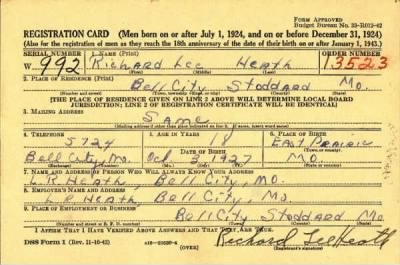 FORM APPROVED
Budget Bureau No. 33-R012-42
REGISTRATION CARD (Men born on or after July 1, 1924, and on or before December 31, 1924)
(Also for the registration of men as they reach the 18th anniversary of the date of their birth on or after January 1, 1943.)
SERIAL NUMBER 1. NAME (Print) ORDER NUMBER
W 992 Richard Lee Heath 13523
(First) (Middle) (Last)
2. PLACE OF RESIDENCE (Print)
Bell City Stoddard Mo.
(Number and street) (Town, township, village, or city) (County) (State)
[THE PLACE OF RESIDENCE GIVEN ON LINE 2 ABOVE WILL DETERMINE LOCAL BOARD
JURISDICTION; LINE 2 OF REGISTRATION CERTIFICATE WILL BE IDENTICAL]
3. MAILING ADDRESS
Same
[Mailing address if other than place indicated on line 2. If same, insert word same]
4. TELEPHONE 5. AGE IN YEARS 6. PLACE OF BIRTH
5724 East Prairie
DATE OF BIRTH (Town or county)
Bell City, Mo. Oct 3 1927 Mo.
(Exchange) (Number) (Mo.) (Day) (Yr.) (State or country)
7. NAME AND ADDRESS OF PERSON WHO WILL ALWAYS KNOW YOUR ADDRESS
L.R. Heath, Bell City, Mo.
8. EMPLOYER'S NAME AND ADDRESS
L.R. Heath, Bell City, Mo.
9. PLACE OF EMPLOYMENT OR BUSINESS
Bell City Stoddard Mo.
(Number and street or R. F. D. number) (Town) (County) (State)
I AFFIRM THAT I HAVE VERIFIED ABOVE ANSWERS AND THAT THEY ARE TRUE.
DSS Form 1 (Rev. 11-16-42) (OVER) Richard Lee Heath
(Registrant's signature)